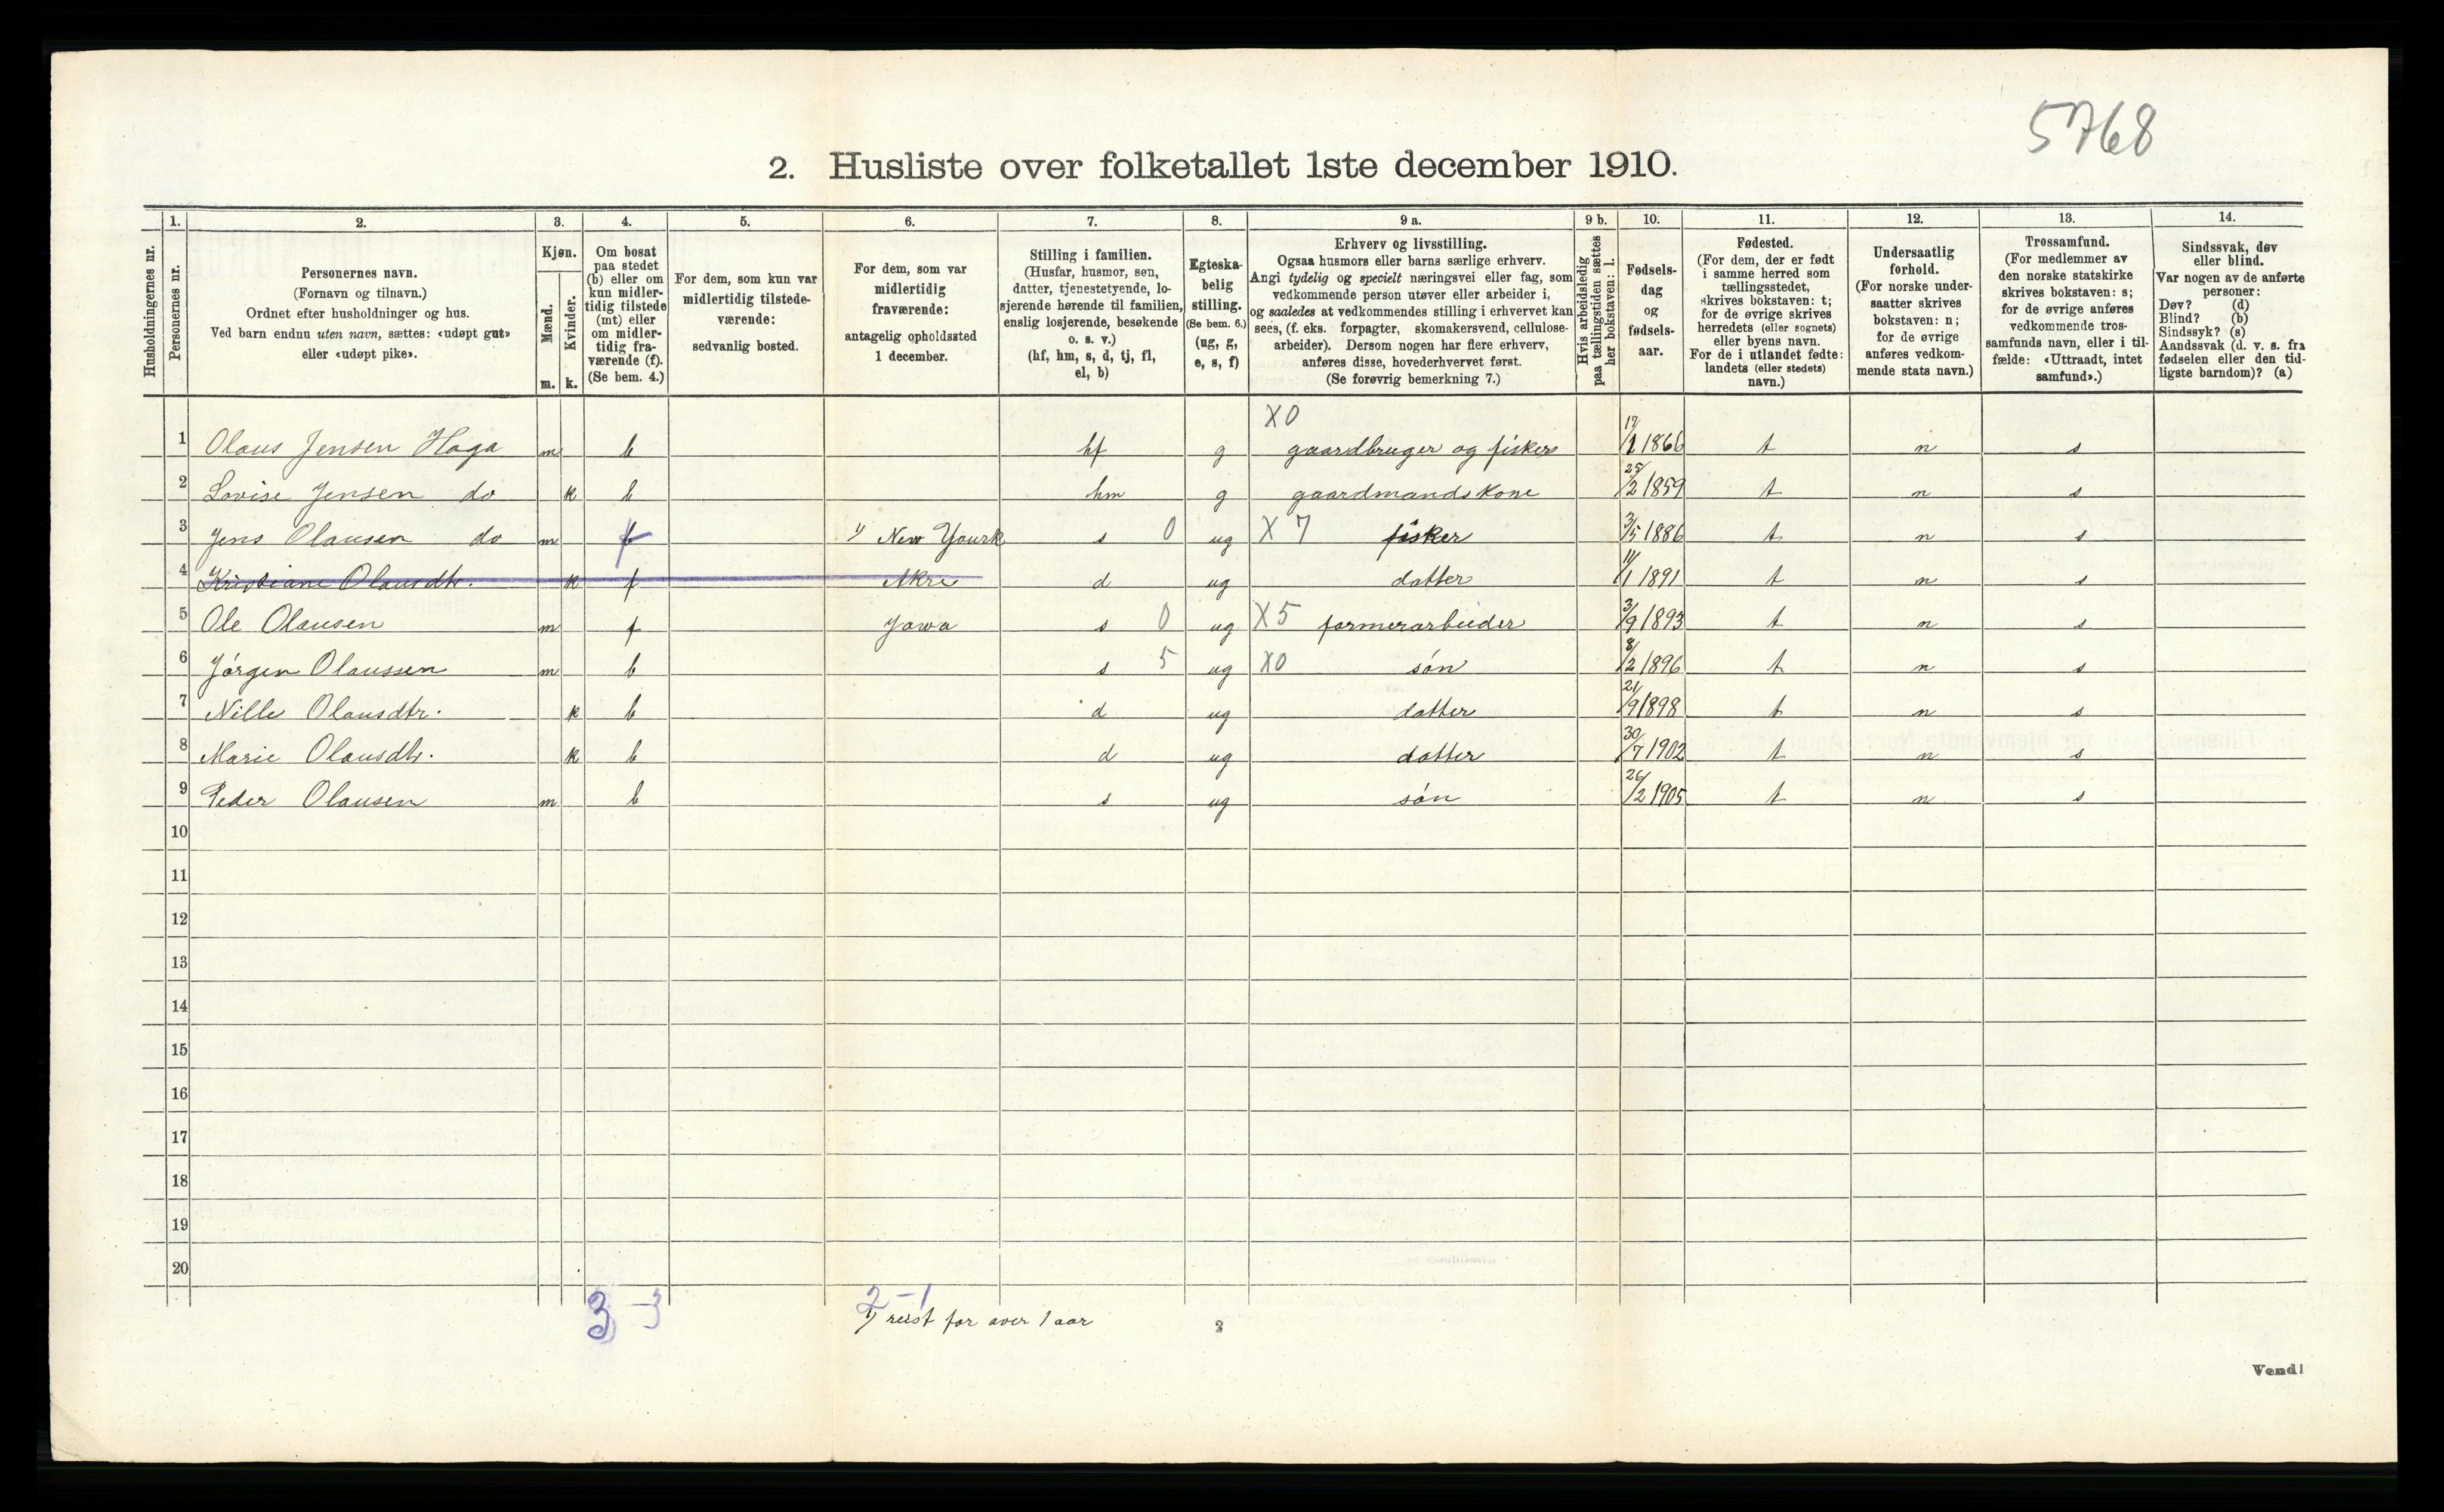 5768
2. Husliste over folketallet 1ste december 1910.
Husholdningernes nr.
1. Personernes nr.
2. Personernes navn.
(Fornavn og tilnavn.)
Ordnet efter husholdninger og hus.
Ved barn endnu uten navn, sættes: «udøpt gut»
eller «udøpt pike».
3. Kjøn.
Mænd. m.
Kvinder. k.
4. Om bosat
paa stedet
(b) eller om
kun midler-
tidig tilstede
(mt) eller
om midler-
tidig fra-
værende (f).
(Se bem. 4.)
5. For dem, som kun var
midlertidig tilstede-
værende:
sedvanlig bosted.
6. For dem, som var
midlertidig
fraværende:
antagelig opholdssted
1 december.
7. Stilling i familien.
(Husfar, husmor, søn,
datter, tjenestetyende, lo-
sjerende hørende til familien,
enslig losjerende, besøkende
o. s. v.)
(hf, hm, s, d, tj, fl,
el, b)
8. Egteska-
belig
stilling.
(Se bem. 6.)
(ug, g,
e, s, f)
9 a. Erhverv og livsstilling.
Ogsaa husmors eller barns særlige erhverv.
Angi tydelig og specielt næringsvei eller fag, som
vedkommende person utøver eller arbeider i,
og saaledes at vedkommendes stilling i erhvervet kan
sees, (f. eks. forpagter, skomakersvend, cellulose-
arbeider). Dersom nogen har flere erhverv,
anføres disse, hovederhvervet først.
(Se forøvrig bemerkning 7.)
9 b. Hvis arbeidsledig
paa tællingstiden sættes
her bokstaven: l.
10. Fødsels-
dag
og
fødsels-
aar.
11. Fødested.
(For dem, der er født
i samme herred som
tællingsstedet,
skrives bokstaven: t;
for de øvrige skrives
herredets (eller sognets)
eller byens navn.
For de i utlandet fødte:
landets (eller stedets)
navn.)
12. Undersaatlig
forhold.
(For norske under-
saatter skrives
bokstaven: n;
for de øvrige
anføres vedkom-
mende stats navn.)
13. Trossamfund.
(For medlemmer av
den norske statskirke
skrives bokstaven: s;
for de øvrige anføres
vedkommende tros-
samfunds navn, eller i til-
fælde: «Uttraadt, intet
samfund».)
14. Sindssvak, døv
eller blind.
Var nogen av de anførte
personer:
Døv? (d)
Blind? (b)
Sindssyk? (s)
Aandssvak (d. v. s. fra
fødselen eller den tid-
ligste barndom)? (a)
X0
1 Olaus Jensen Haga m b hf g gaardbruger og fisker 17/1 1866 t n s
2 Lovise Jensen do k b hm g gaardmandskone 25/2 1859 t n s
3 Jens Olausen do m f 1) New Yourk s 0 ug X 7 fisker 3/5 1886 t n s
4 Kristiane Olausdtr. k f Akre d ug datter 11/1 1891 t n s
5 Ole Olausen m f Jowa s 0 ug X5 farmerarbeider 3/9 1893 t n s
6 Jørgen Olaussen m b s 5 ug X0 søn 8/2 1896 t n s
7 Nille Olausdtr. k b d ug datter 21/9 1898 t n s
8 Marie Olausdtr. k b d ug datter 30/7 1902 t n s
9 Peder Olausen m b s ug søn 26/2 1905 t n s
10
11
12
13
14
15
16
17
18
19
20
3 - 3
2 - 1
1) reist for over 1 aar
2
Vend!